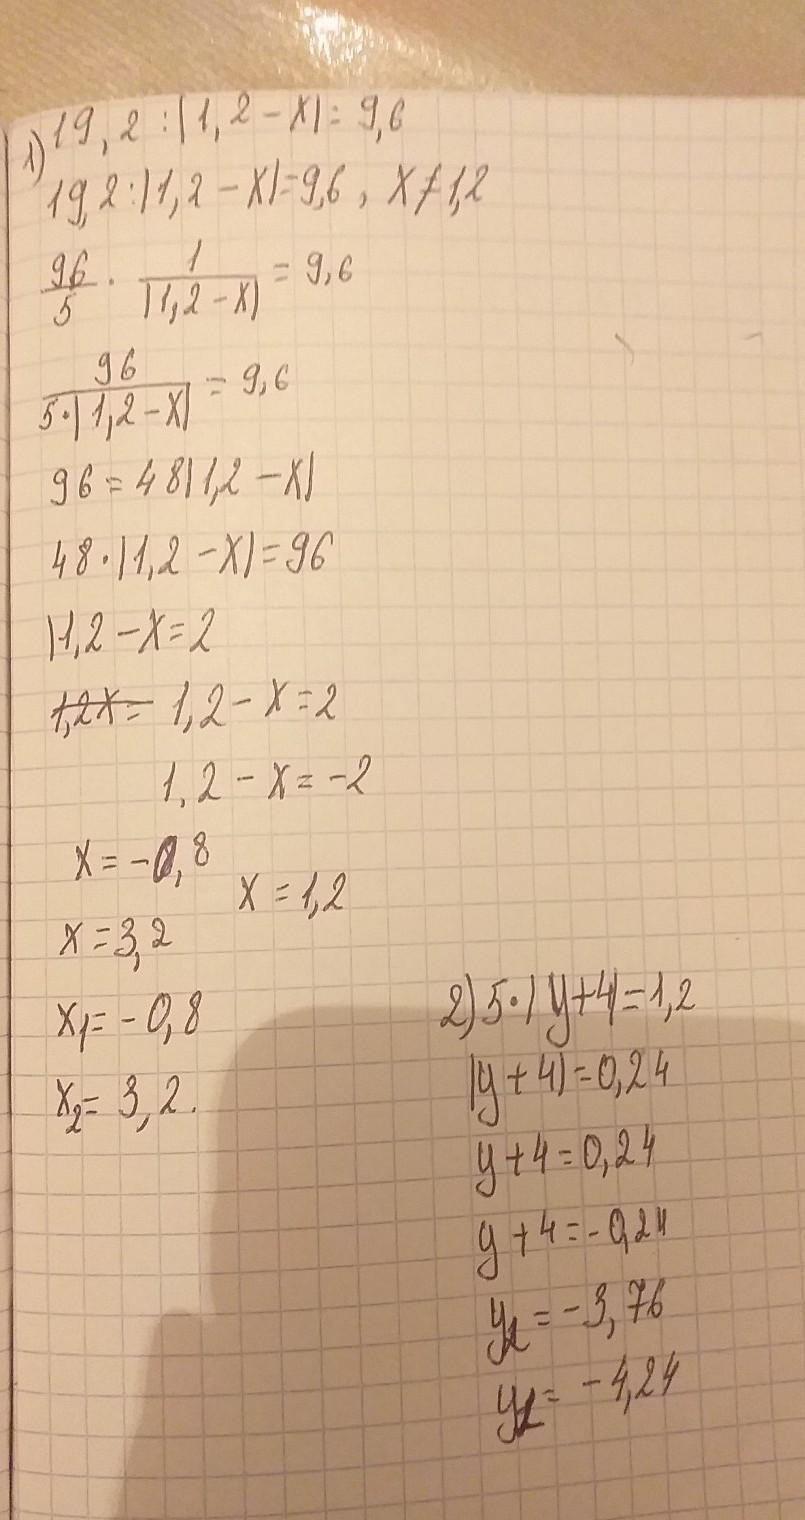 1) 19,2 : |1,2 - x| = 9,6
19,2 : |1,2 - x| = 9,6 , x ≠ 1,2
96/5 · 1/|1,2 - x| = 9,6
96/5·|1,2 - x| = 9,6
96 = 48|1,2 - x|
48·|1,2 - x| = 96
|1,2 - x = 2
1,2x = 1,2 - x = 2
1,2 - x = -2
x = -0,8
x = 1,2
x = 3,2
x₁ = -0,8
x₂ = 3,2.
2) 5·|y+4| = 1,2
|y+4| = 0,24
y+4 = 0,24
y+4 = -0,24
y₁ = -3,76
y₂ = -4,24